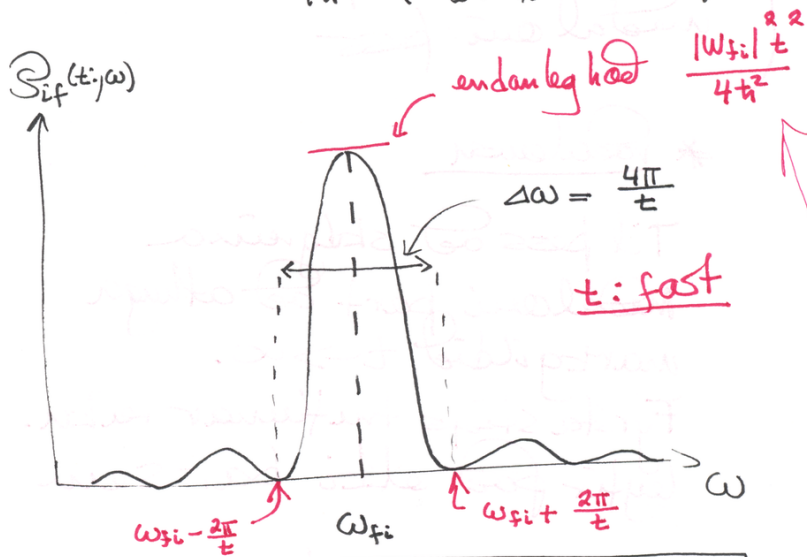 𝒫_if(t;ω)
endanleg hæð |W_fi|² t² / 4ħ²
Δω = 4π / t
t: fast
ω
ω_fi - 2π/t
ω_fi
ω_fi + 2π/t